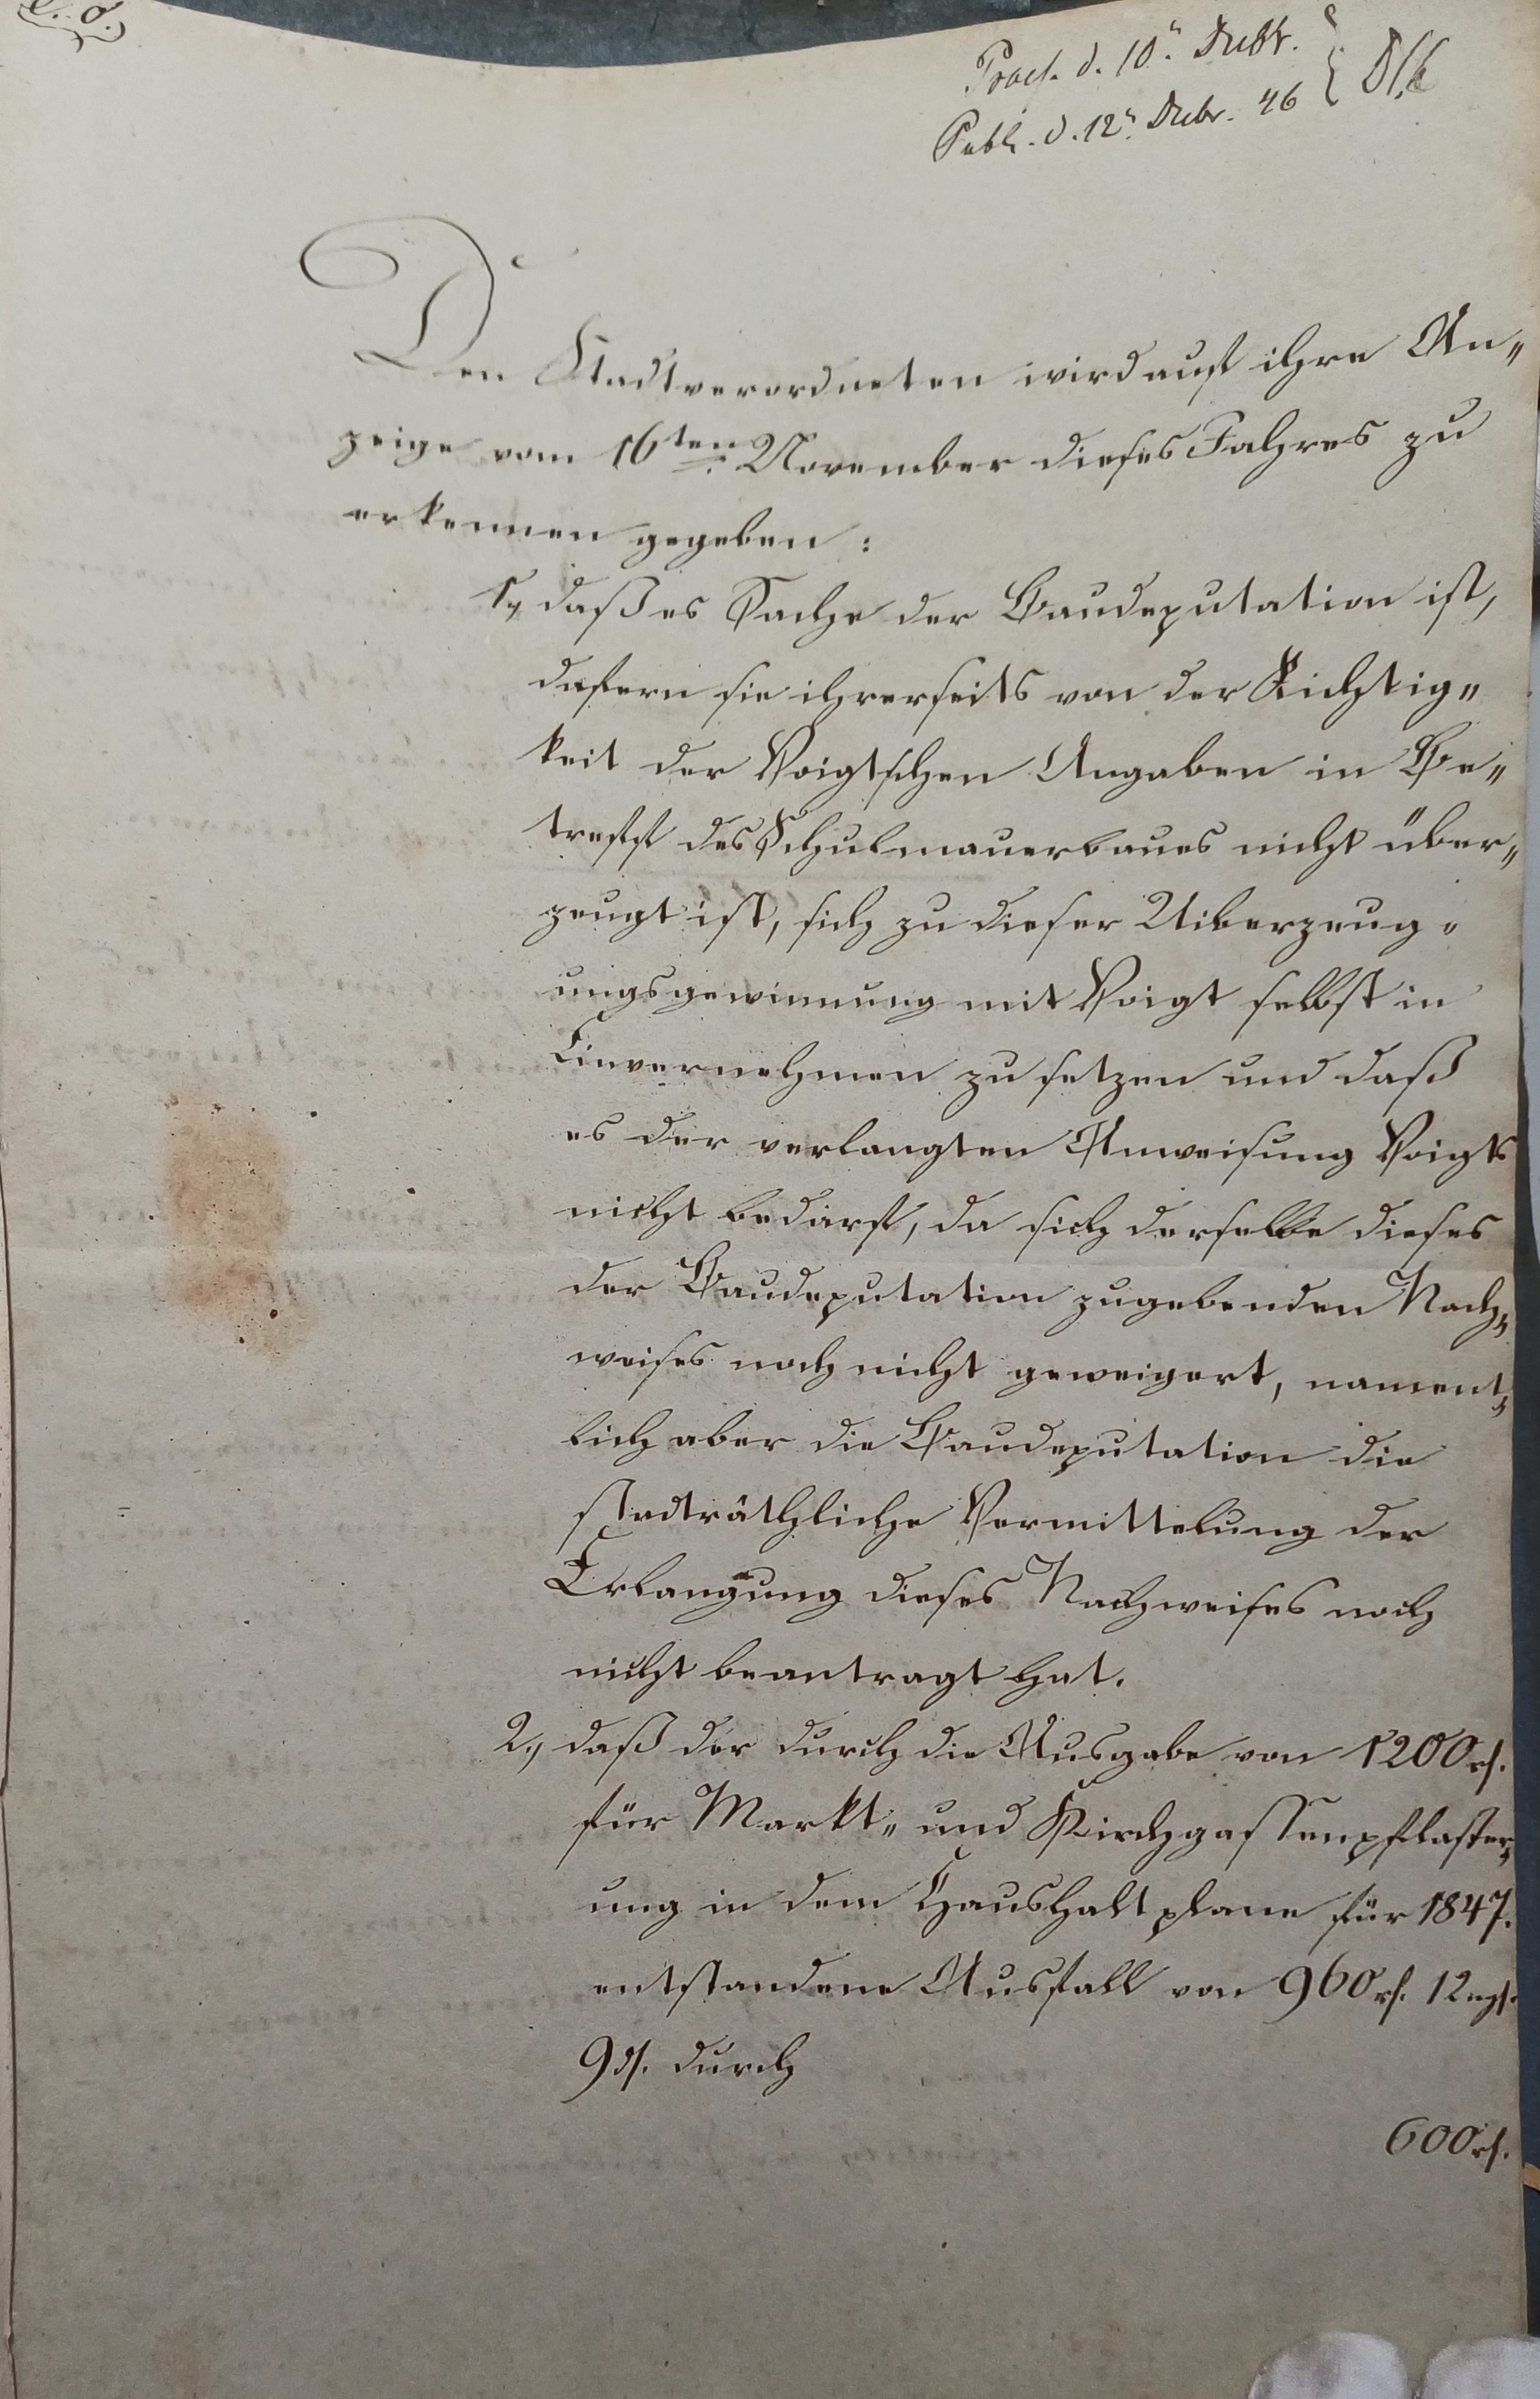 Praes. d. 10n Decbr.
Publ. d. 12n Decbr. 46
Den Stadtverordneten wird auf ihre An„
zeige vom 16ten November dieses Jahres zu
erkennen gegeben:
1., daß es Sache der Baudeputation ist,
dafern sie ihrerseits von der Richtig„
keit der Voigtschen Angaben in Be„
treff des Schulmauerbaues nicht über„
zeugt ist, sich zu dieser Uiberzeug„
ungsgewinnung mit Voigt selbst in
Einvernehmen zu setzen und daß
es der verlangten Anweisung Voigts
nicht bedarf, da sich derselbe dieses
der Baudeputation zugebenden Nach„
weises noch nicht geweigert, nament„
lich aber die Baudeputation die
stadträthliche Vermittelung der
Erlangung dieses Nachweises noch
nicht beantragt hat.
2., daß der durch die Ausgabe von 1200 rf.
für Markt„ und Kirchgassenpflaster„
ung in dem Haushaltplane für 1847.
entstandene Ausfall von 960 rf. 12 ngf.
9 df. durch
600 rf.